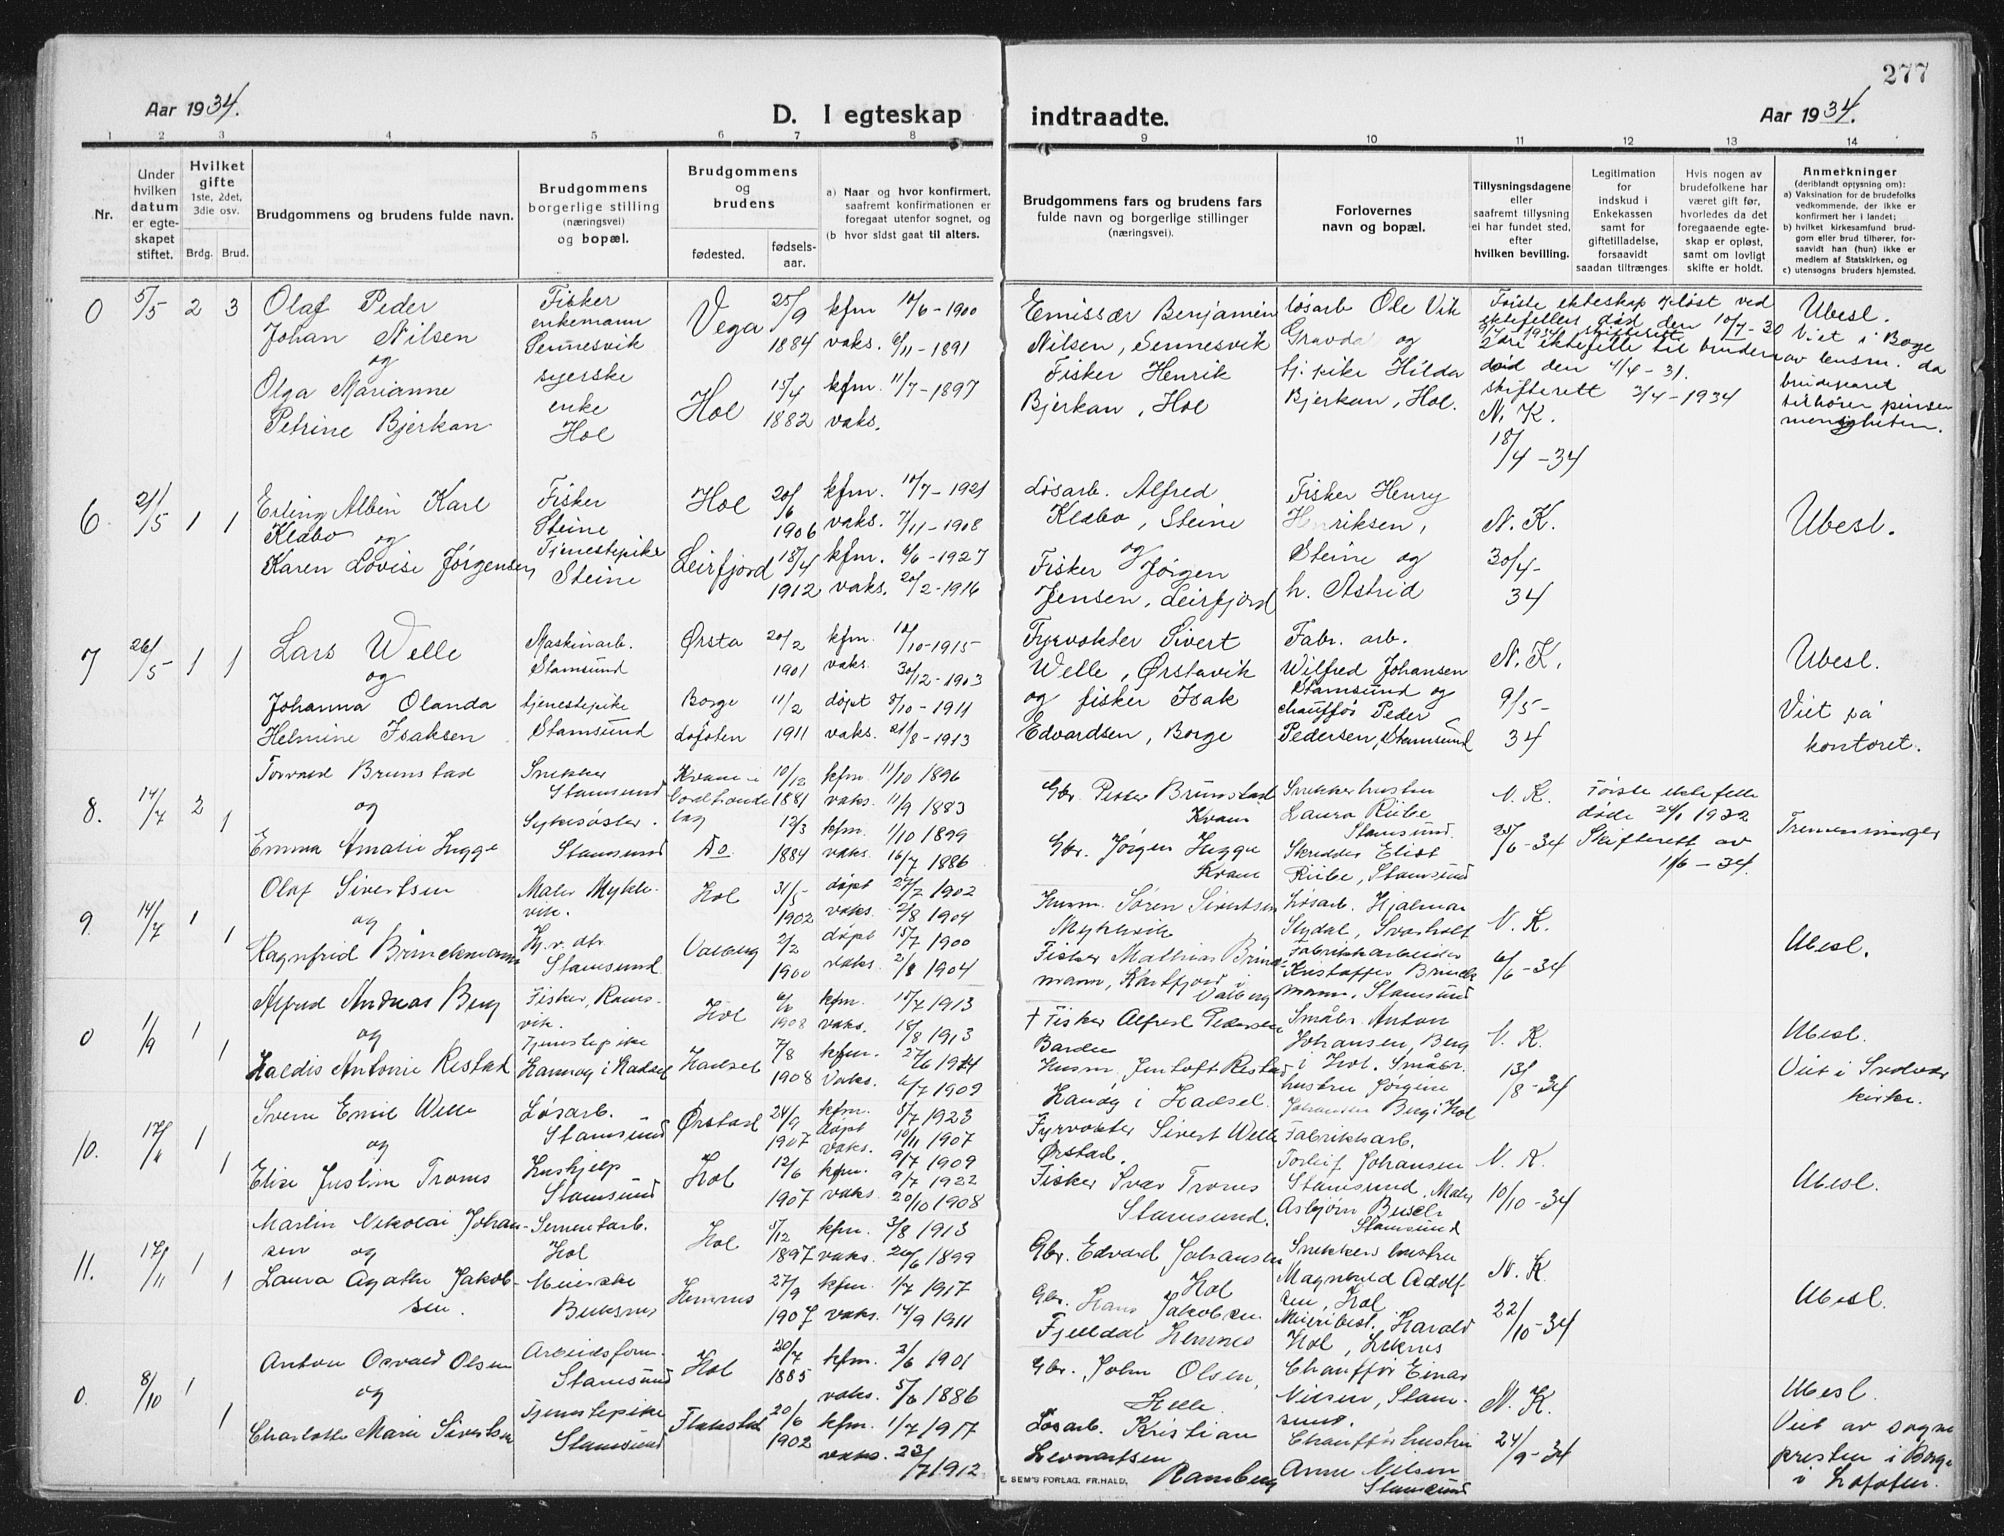 277
Aar 1934.
D. I egteskap indtraadte.
Aar 1934.
1 2 3 4 5 6 7 8 9 10 11 12 13 14
Nr.
Under hvilken datum er egteskapet stiftet.
Hvilket gifte 1ste, 2det, 3die osv.
Brdg. Brud.
Brudgommens og brudens fulde navn.
Brudgommens borgerlige stilling (næringsvei) og bopæl.
Brudgommens og brudens
fødested. fødsels-aar.
a) Naar og hvor konfirmert, saafremt konfirmationen er foregaat utenfor sognet, og
(b hvor sidst gaat til alters.
Brudgommens fars og brudens fars fulde navn og borgerlige stillinger (næringsvei).
Forlovernes navn og bopæl.
Tillysningsdagene eller saafremt tillysning ei har fundet sted, efter hvilken bevilling.
Legitimation for indskud i Enkekassen samt for giftetilladelse, forsaavidt saadan tiltrænges
Hvis nogen av brudefolkene har været gift før, hvorledes da det foregaaende egteskap er opløst, samt om lovligt skifte er holdt.
Anmerkninger (deriblandt oplysning om):
a) Vaksination for de brudefolks vedkommende, der ikke er konfirmert her i landet;
b) hvilket kirkesamfund brudgom eller brud tilhører, forsaavidt han (hun) ikke er medlem af Statskirken, og
c) utensogns bruders hjemsted.
0 5/5 2 3
Olaf Peder
Johan Nilsen
og
Olga Marianne
Petrine Bjerkan
Fisker
enkemann
Sennesvik
syerske
enke
Hol
Vega 25/9 1884
Hol 15/4 1882
kfm 10/6 - 1900
vaks. 6/11 - 1891
kfm. 11/7 - 1897
vaks.
Emissær Benjamin
Nilsen, Sennesvik
Fisker Henrik
Bjerkan, Hol
Løsarb Ole Vik
Gravdal og
tj. pike Hilda
Bjerkan, Hol.
Første ekteskap opløst ved
ektefelles død den 10/7 - 30
3/4 - 1934 skifterett
2dre ektefelle til bruden
død den 4/4 - 31.
skifterett 3/4 - 1934
N. K.
18/4 - 34
Ubesl.
Viet i Borge
av lensm. da
brudeparet
tilhører pinse
menigheten.
6 21/5 1 1
Erling Albin Karl
Klæbo og
Karen Lovise Jørgensen
Fisker
Steine
Tjenestepike
Steine
Hol 20/6 1906
Leirfjord 18/4 1912
kfm. 10/7 - 1921
vaks. 7/11 - 1908
kfm. 6/6 - 1927
vaks. 20/2 - 1916
Løsarb. Alfred
Klæbo, Steine
og
Fisker Jørgen
Jensen, Leirfjord
Fisker Henry
Henriksen,
Steine og
h. Astrid
N. K.
30/4 -
34
Ubesl.
7 26/5 1 1
Lars Welle
og
Johanna Olanda
Helmine Isaksen
Maskinarb.
Stamsund
tjenestepike
Stamsund
Ørsta 20/2 1901
Borge 11/2
Lofoten 1911
kfm. 10/10 - 1915
vaks. 30/12 - 1903
døpt 8/10 - 1911
vaks. 21/8 - 1913
Fyrvokter Sivert
Welle, Ørstavik
og fisker Isak
Edvardsen, Borge
Fabr. arb.
Wilfred Johansen
Stamsund og
chauffør Peder
Pedersen, Stamsund
N. K.
9/5 -
34
Ubesl.
Viet på
kontoret.
8. 14/7 2 1
Torvald Brunstad
og
Emma Amalie Hugge
Snekker
Stamsund
Sykesøster.
Stamsund
Kvam i
10/12 1881
Do 12/3 1884
kfm. 11/10 1896
vaks. 11/9 1883
kfm. 1/10 1899
vaks. 16/7 1886
Gbr. Petter Brunstad
Kvam
Gbr. Jørgen Hugge
Kvam
Snekkerhustru
Laura Ribe
Stamsund.
Skredder Elist
Ribe, Stamsund
N. K.
25/6 - 34
Første ektefelle
døde 24/1 1932
Skifterett av
1/6 - 34.
Tremenninger
9. 14/7 1 1
Olaf Sivertsen
og
Hagnfrid Brinckmann
Maler Mykle-
vik.
Stamsund.
Hol 31/5 1902
Valberg 2/2 1900
døpt 27/7 1902
vaks. 2/8 1904
døpt 15/7 1900
vaks. 2/8 1904
Husm. Søren Sivertsen
Myklevik
Fisker Mathias Brinck-
mann, Kartfjord i
Valberg
Løsarb. Hjalmar
Stydal, Svarholt
Fabrikkarbeider
Kristoffer Brinck-
mann, Stamsund
N. K.
6/6 - 34
Ubesl.
0 1/9 1 1
Alfred Andreas Berg
og
Haldis Antonie Ristad
Fisker, Rams-
vik.
Tjenestepike
Hannøy i Hadsel
Hol 1908
Hadsel 7/8 1908
kfm. 15/7 1913
vaks. 18/8 1913
kfm. 27/6 1924
Vaks. 6/7 1909
+ Fisker Alfred Pedersen
Husm. Jentoft Ristad
Hanøy i Hadsel.
Småbr. Anton
Johansen, Berg
i Hol. Småbr.
hustru Jørgine
Johansen Berg i Hol
N. K.
13/8 - 34
Ubesl.
Viet i Svolvær
kirke.
10. 1 1
Svein Emil Welle
og
Elise Justine Troms
Løsarb.
Stamsund
Hushjelp
Stamsund
Ørstad 24/9 1907
Hol 12/6 1907
kfm. 5/7 1923
døpt 10/11 1907
vaks. 9/7 1909
kfm. 9/7 1922
vaks. 20/10 1908
Fyrvokter Sivert Welle
Ørstad.
Fisker Troms
Stamsund.
Fabrikkarb.
Torleif Johansen
Stamsund. Maler
Asbjørn
Stamsund
N. K.
10/10 - 34
Ubesl.
11. 17/11 1 1
Martin Nikolai Johan-
sen og
Laura Agathe Jakob-
sen.
Sementarb.
Hol
Meierske
Buksnes
Hol 5/12 1897
Hemnes 27/9 1907
kfm. 3/8 1913
vaks. 26/6 1899
kfm. 1/7 1917
vaks. 14/9 1911
Gbr. Edvard Johansen
Hol
Gbr. Hans Jakobsen
Fjelldal Hemnes
Snekkers hustru
Magnhild Adolf
sen, Hol
Meieribest. Harald
Hol, Leknes
N. K.
22/10 - 34
Ubesl.
0. 8/10 1 1
Anton Osvald Olsen
og
Charlotte Marie Sivertsen
Arbeidsform.
Stamsund
Tjenestepike
Stamsund
Hol 20/7 1885
Flakstad 20/6 1902
kfm. 2/6 1901
vaks. 1886
kfm. 1/7 1917
vaks. 23/7 1912
Gbr. John Olsen,
Helle.
Løsarb. Kristian
Levnartsen
Ramberg
Chauffør Einar
Nilsen, Stam-
sund.
Chaufførhustru
Anne Nilsen
Stamsund
N. K.
24/9 - 34
Ubesl.
Viet av sogne
presten i Borge
i Lofoten.
E. SEM'S FORLAG, FR.HALD.